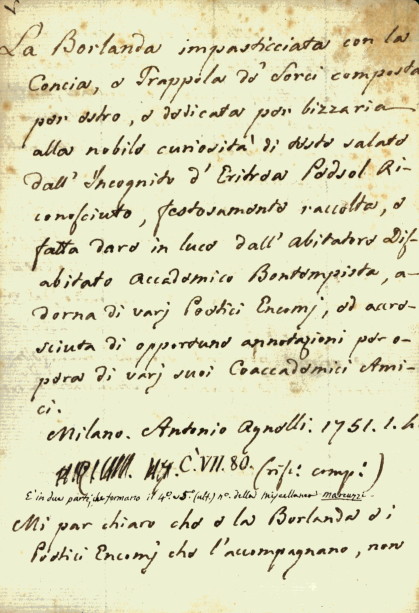 La Borlanda impasticciata con la
Concia, e Trappola de' Sorci composta
per estro, e dedicata per bizzaria
alla nobile curiosità di teste salate
dall' Incognito d' Eritrea Pedsol Ri-
conosciuto, festosamente raccolta, e
fatta dare in luce dall' Abitatore Dis-
abitato Accademico Bontempista, a-
dorna di varj Poetici Encomj, ed accre-
sciuta di opportune annotazioni per o-
pera di varj suoi Coaccademici Ami-
ci.
Milano. Antonio Agnelli. 1751. 1. 4.
C. VII. 80. (risc: comp:)
È in due parti, che formano il 4°. e 5°. (ult.) n°. della Miscellanea marcuzzi.
Mi par chiaro che e la Borlanda e i
Poetici Encomj che l'accompagnano, non